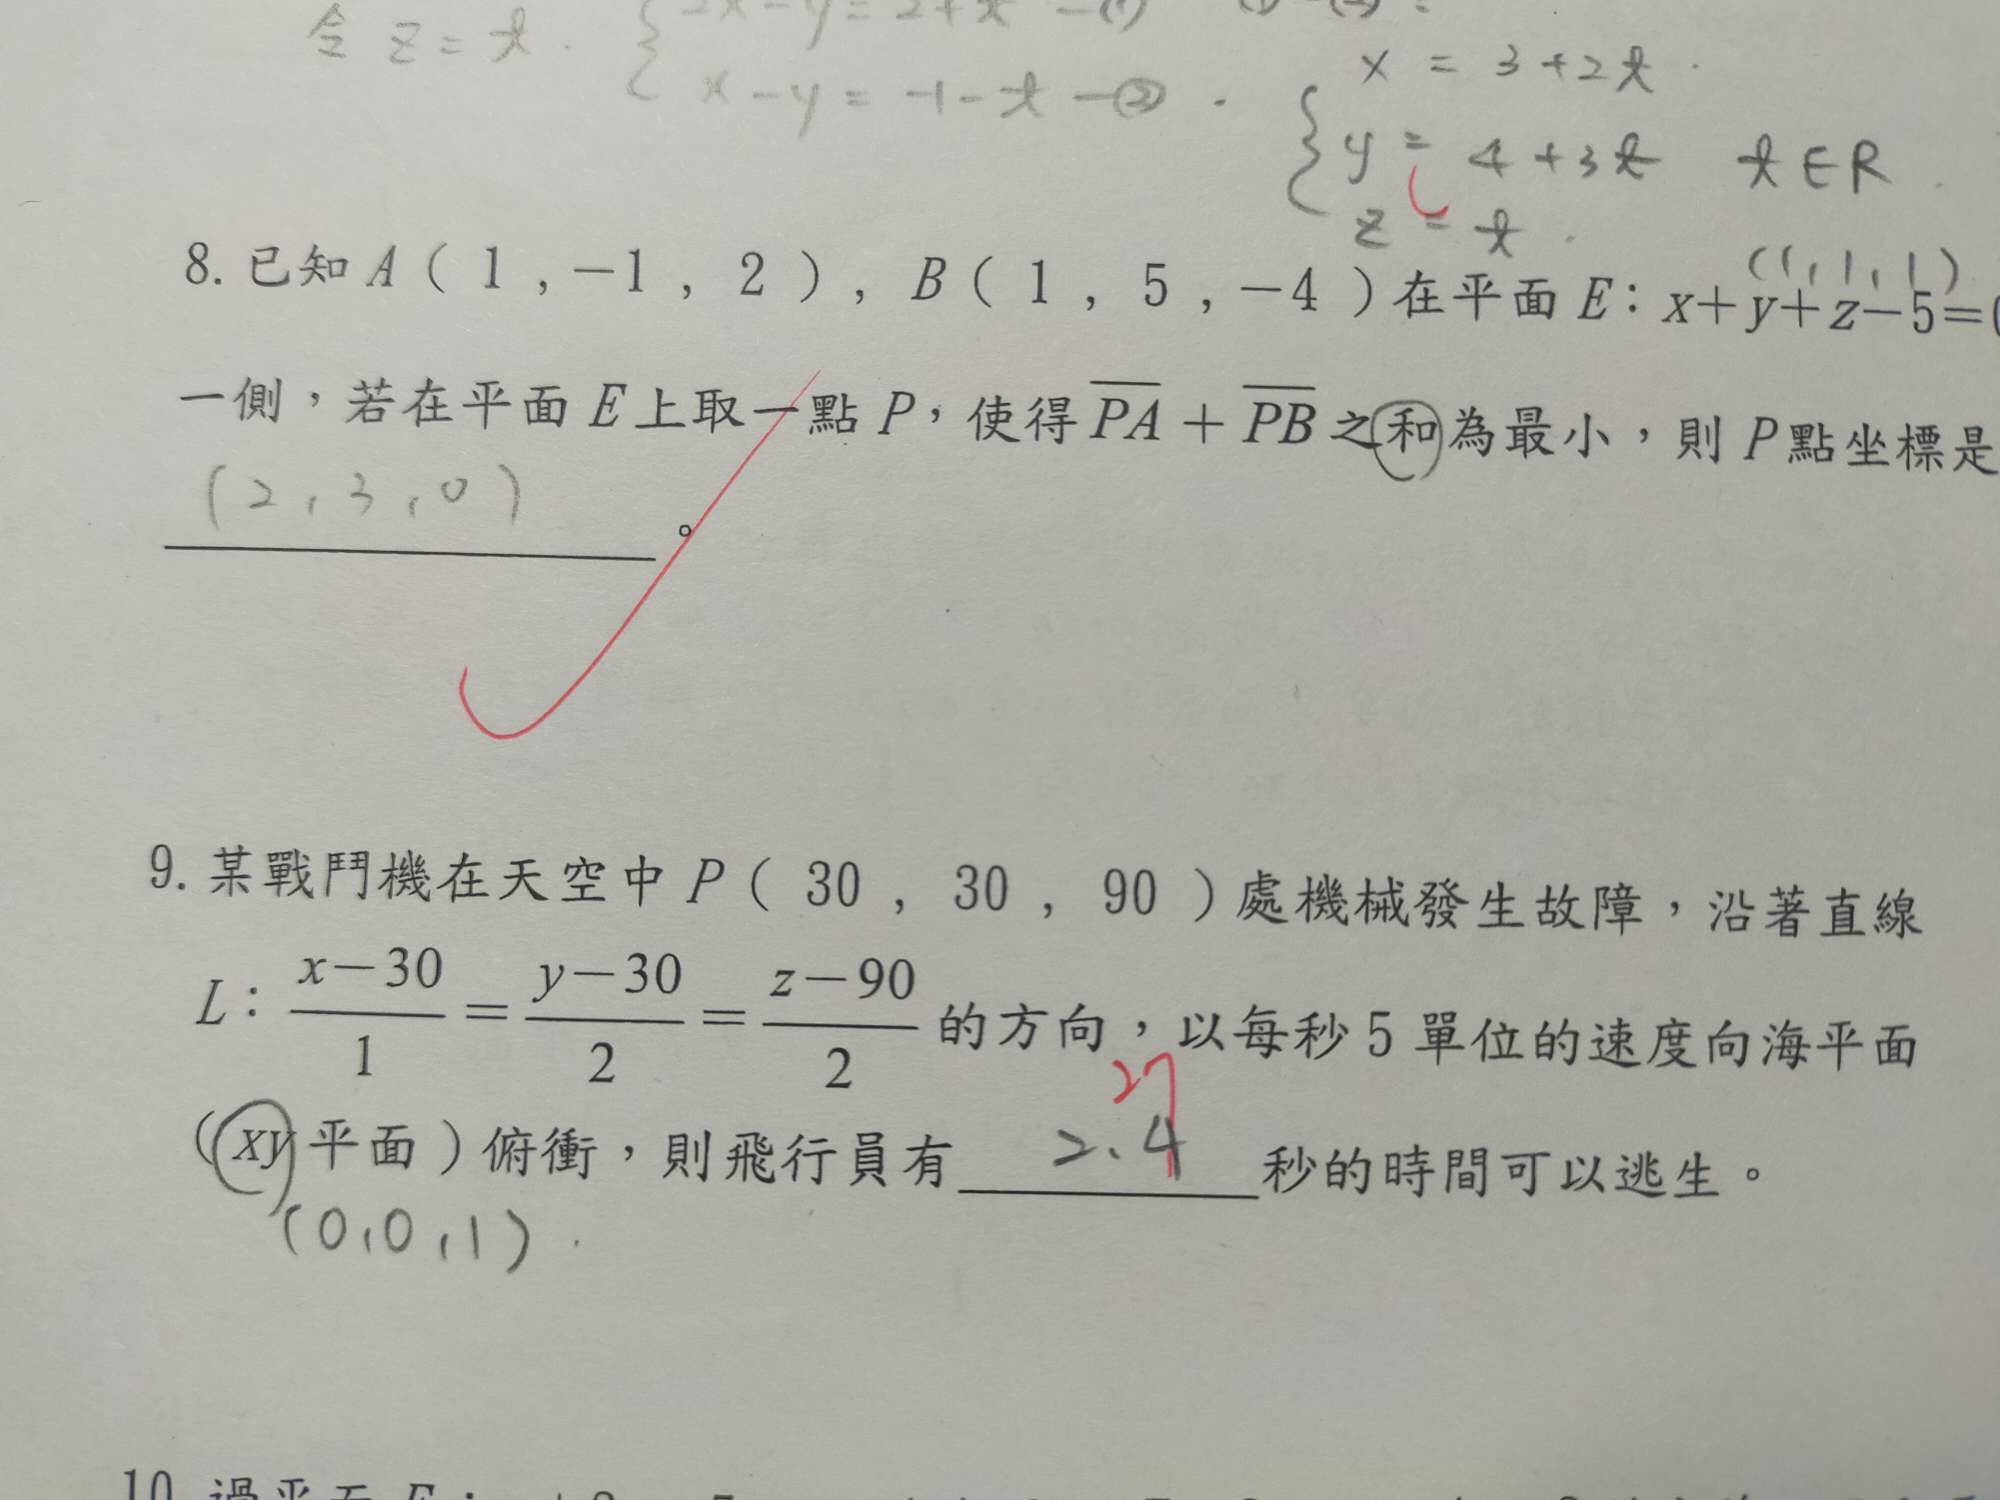 令 z = t .
2x - y = 2 + t -(1)
x - y = -1 - t -(2) .
x = 3 + 2t .
y = 4 + 3t t ∈ R .
z = t .
(1, 1, 1)
8. 已知 A ( 1 , -1 , 2 ) , B ( 1 , 5 , -4 ) 在平面 E : x+y+z-5=0
一側，若在平面 E 上取一點 P，使得 PA + PB 之和為最小，則 P點坐標是
(2, 3, 0) 。
9. 某戰鬥機在天空中 P ( 30 , 30 , 90 ) 處機械發生故障，沿著直線
L : (x-30)/1 = (y-30)/2 = (z-90)/2 的方向，以每秒 5 單位的速度向海平面
27
( xy 平面 ) 俯衝，則飛行員有 2.4 秒的時間可以逃生。
(0, 0, 1) .
10. 過平面 E :